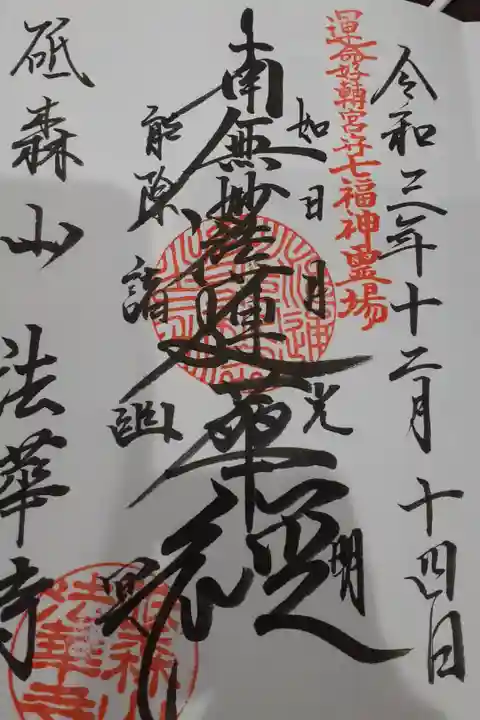 令和三年十二月十四日
運命好轉宮谷七福神霊場
如日月光明
南無妙法蓮華経
能除諸幽冥
砥森山 法華寺